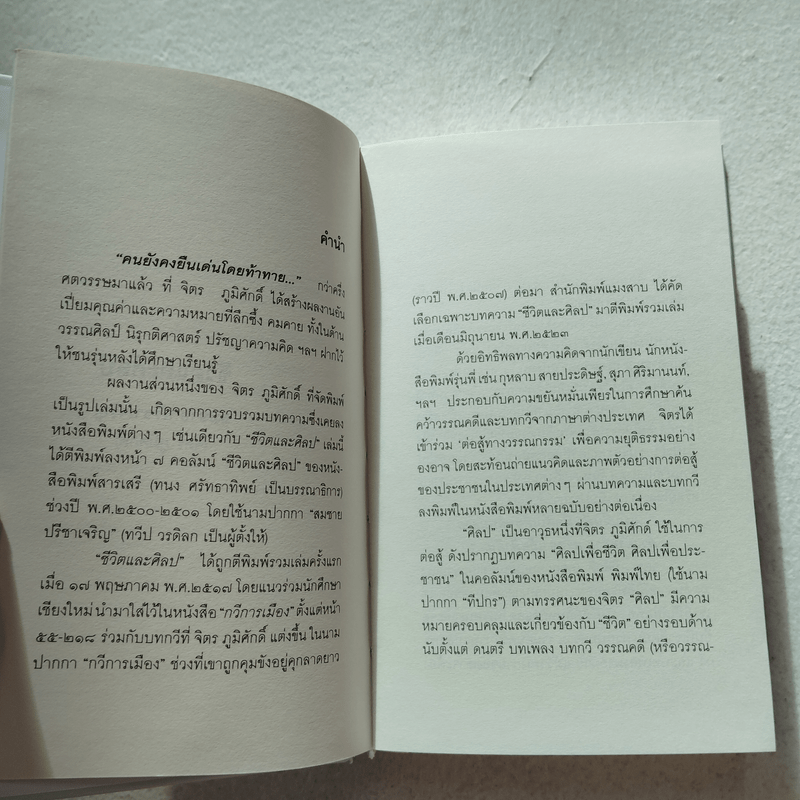 คำนำ
“คนยังคงยืนเด่นโดยท้าทาย...” กว่าครึ่ง
ศตวรรษมาแล้ว ที่ จิตร ภูมิศักดิ์ ได้สร้างผลงานอัน
เปี่ยมคุณค่าและความหมายที่ลึกซึ้ง คมคาย ทั้งในด้าน
วรรณศิลป์ นิรุกติศาสตร์ ปรัชญาความคิด ฯลฯ ฝากไว้
ให้ชนรุ่นหลังได้ศึกษาเรียนรู้
ผลงานส่วนหนึ่งของ จิตร ภูมิศักดิ์ ที่จัดพิมพ์
เป็นรูปเล่มนั้น เกิดจากการรวบรวมบทความซึ่งเคยลง
หนังสือพิมพ์ต่างๆ เช่นเดียวกับ “ชีวิตและศิลป” เล่มนี้
ได้ตีพิมพ์ลงหน้า ๗ คอลัมน์ “ชีวิตและศิลป” ของหนัง-
สือพิมพ์สารเสรี (ทนง ศรัทธาทิพย์ เป็นบรรณาธิการ)
ช่วงปี พ.ศ.๒๕๐๐-๒๕๐๑ โดยใช้นามปากกา “สมชาย
ปรีชาเจริญ” (ทวีป วรดิลก เป็นผู้ตั้งให้)
“ชีวิตและศิลป” ได้ถูกตีพิมพ์รวมเล่มครั้งแรก
เมื่อ ๑๗ พฤษภาคม พ.ศ.๒๕๑๗ โดยแนวร่วมนักศึกษา
เชียงใหม่ นำมาใส่ไว้ในหนังสือ “กวีการเมือง” ตั้งแต่หน้า
๕๕-๒๑๘ ร่วมกับบทกวีที่ จิตร ภูมิศักดิ์ แต่งขึ้น ในนาม
ปากกา “กวีการเมือง” ช่วงที่เขาถูกคุมขังอยู่คุกลาดยาว
(ราวปี พ.ศ.๒๕๐๗) ต่อมา สำนักพิมพ์แมงสาบ ได้คัด
เลือกเฉพาะบทความ “ชีวิตและศิลป” มาตีพิมพ์รวมเล่ม
เมื่อเดือนมิถุนายน พ.ศ.๒๕๒๓
ด้วยอิทธิพลทางความคิดจากนักเขียน นักหนัง-
สือพิมพ์รุ่นพี่ เช่น กุหลาบ สายประดิษฐ์, สุภา ศิริมานนท์,
ฯลฯ ประกอบกับความขยันหมั่นเพียรในการศึกษาค้น
คว้าวรรณคดีและบทกวีจากภาษาต่างประเทศ จิตรได้
เข้าร่วม ‘ต่อสู้ทางวรรณกรรม’ เพื่อความยุติธรรมอย่าง
องอาจ โดยสะท้อนถ่ายแนวคิดและภาพตัวอย่างการต่อสู้
ของประชาชนในประเทศต่างๆ ผ่านบทความและบทกวี
ลงพิมพ์ในหนังสือพิมพ์หลายฉบับอย่างต่อเนื่อง
“ศิลป” เป็นอาวุธหนึ่งที่จิตร ภูมิศักดิ์ ใช้ในการ
ต่อสู้ ดังปรากฏบทความ “ศิลปเพื่อชีวิต ศิลปเพื่อประ-
ชาชน” ในคอลัมน์ของหนังสือพิมพ์ พิมพ์ไทย (ใช้นาม
ปากกา “ทีปกร”) ตามทรรศนะของจิตร “ศิลป” มีความ
หมายครอบคลุมและเกี่ยวข้องกับ “ชีวิต” อย่างรอบด้าน
นับตั้งแต่ ดนตรี บทเพลง บทกวี วรรณคดี (หรือวรรณ-